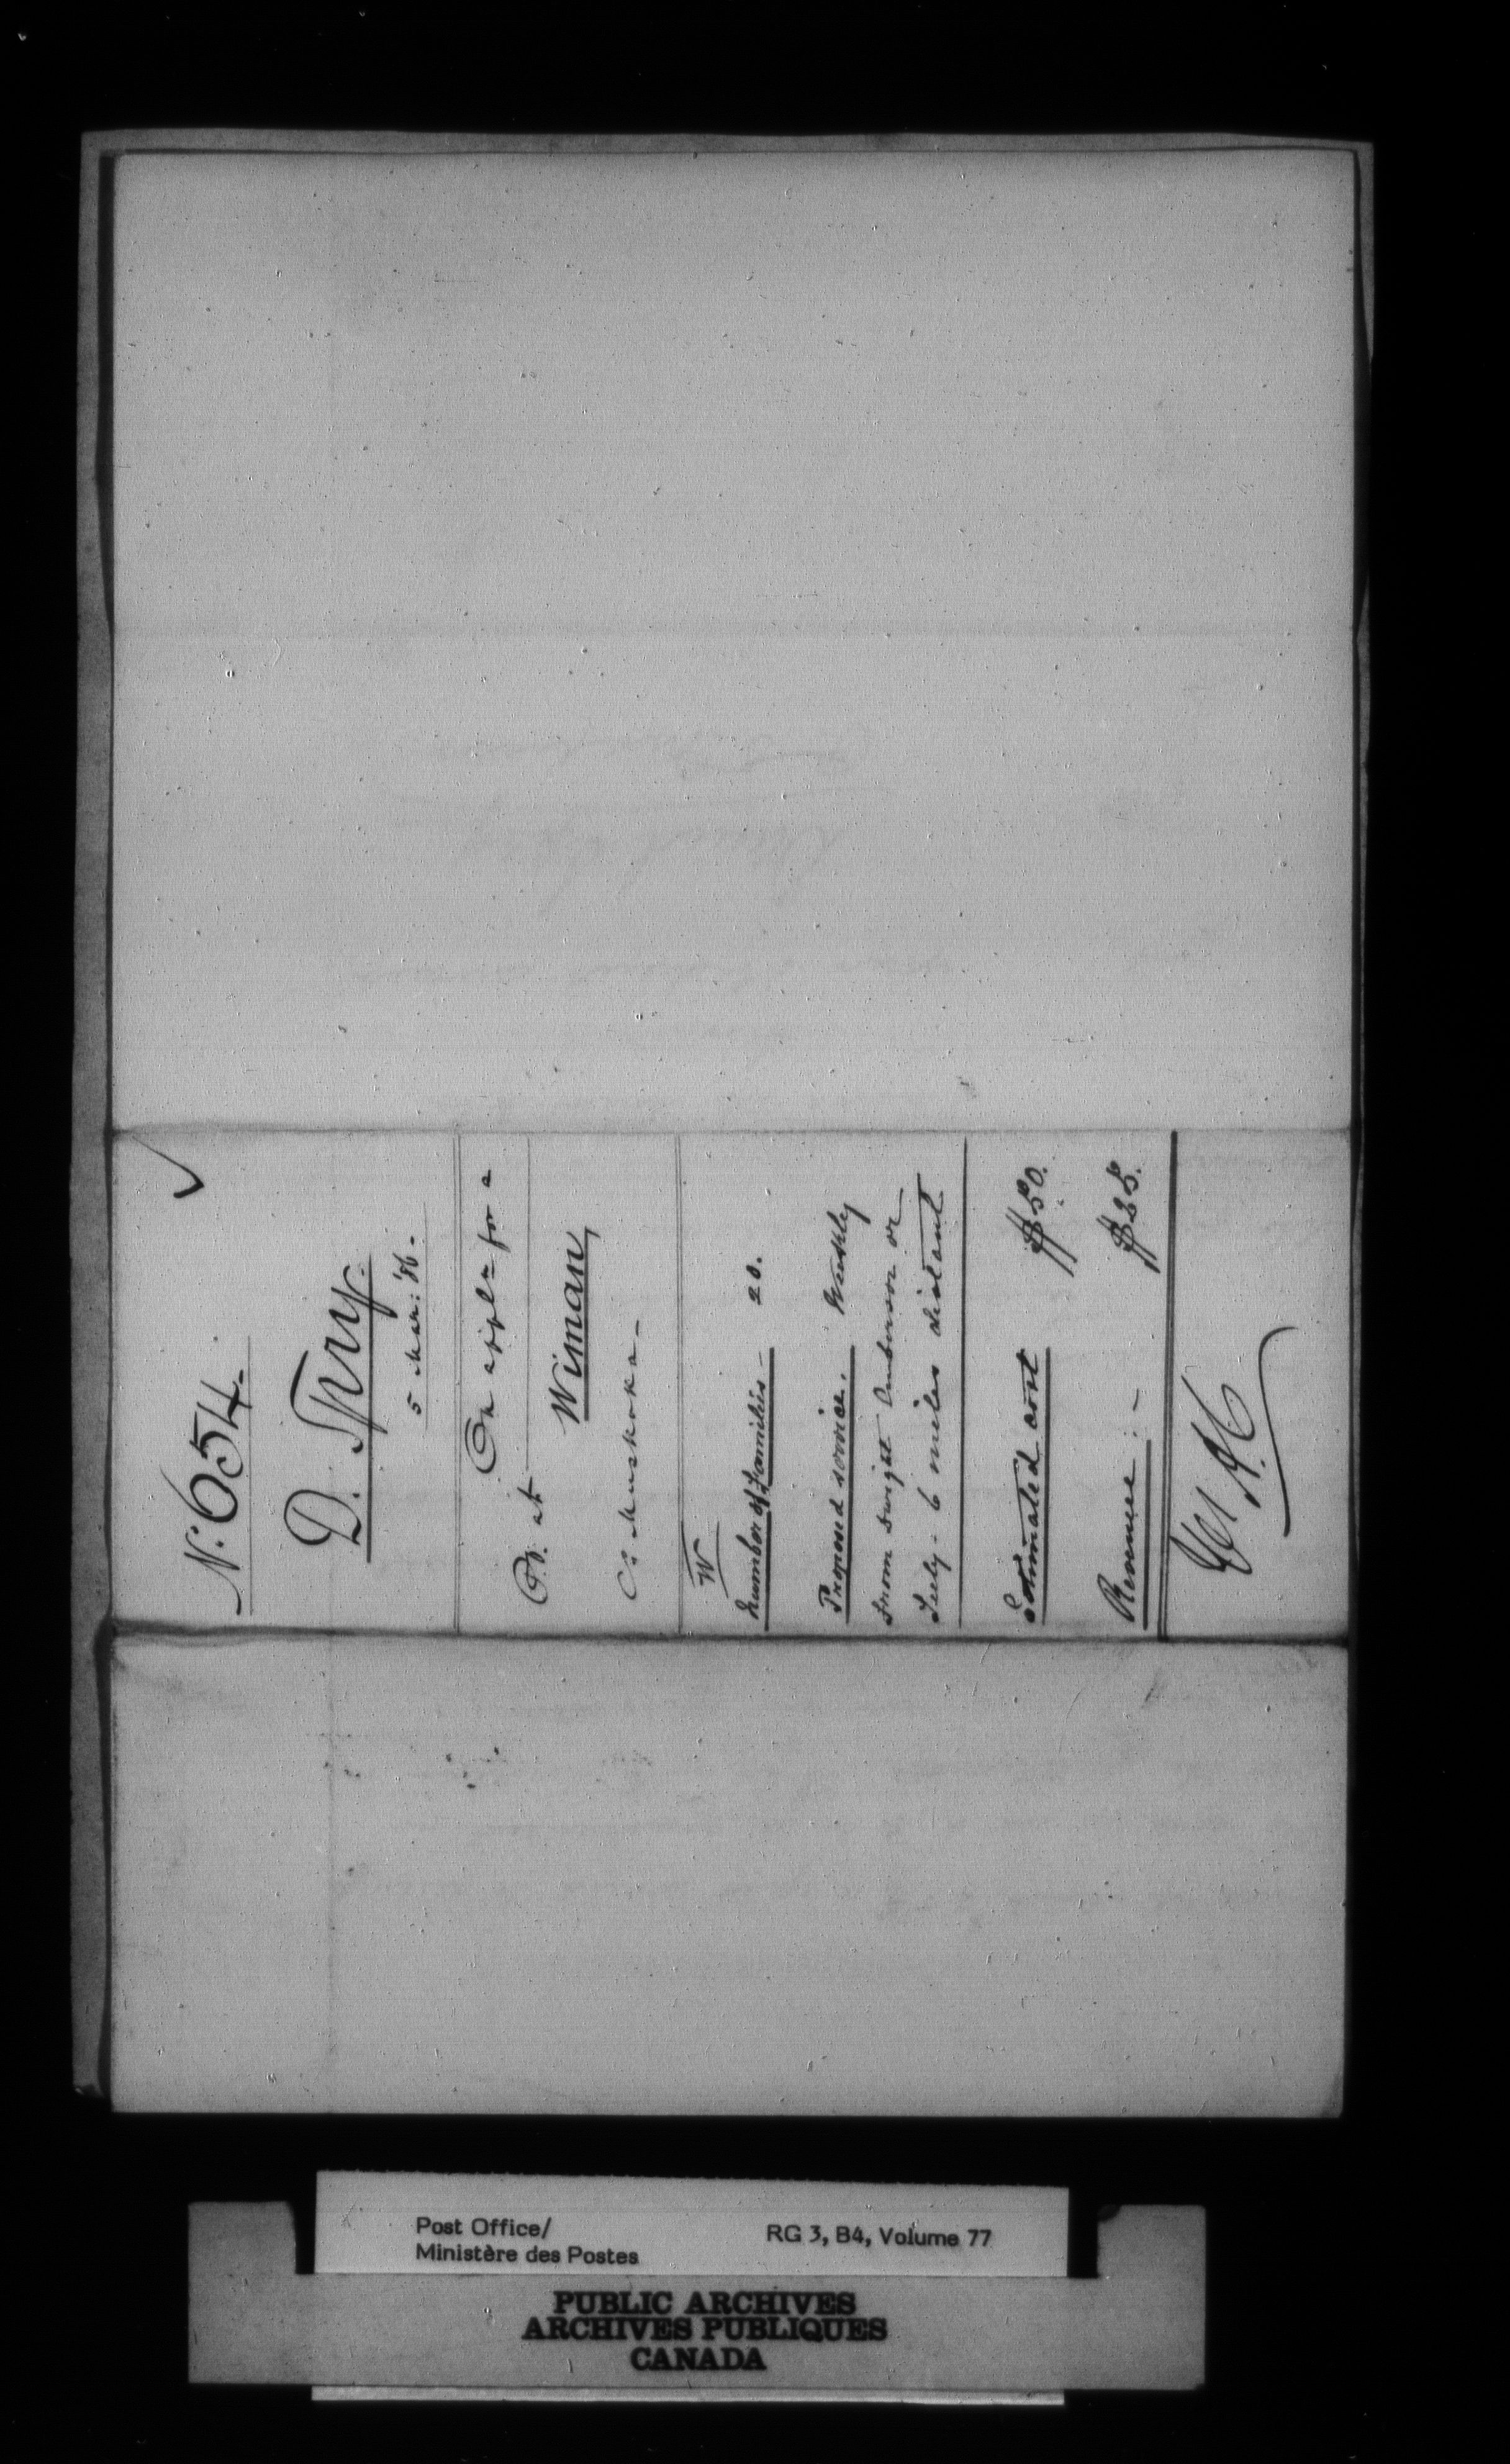 N. 654.
D. Spry.
5 Mar: '86.
On appln for a
P.O. at
Wiman,
Co Muskoka -
W
Number of Families - 20.
Proposed service. Weekly
from Dwight or
6 miles distant
Estimated cost $50.
Revenue :- $25.
Post Office/
Ministère des Postes
RG 3, B4, Volume 77
PUBLIC ARCHIVES
ARCHIVES PUBLIQUES
CANADA